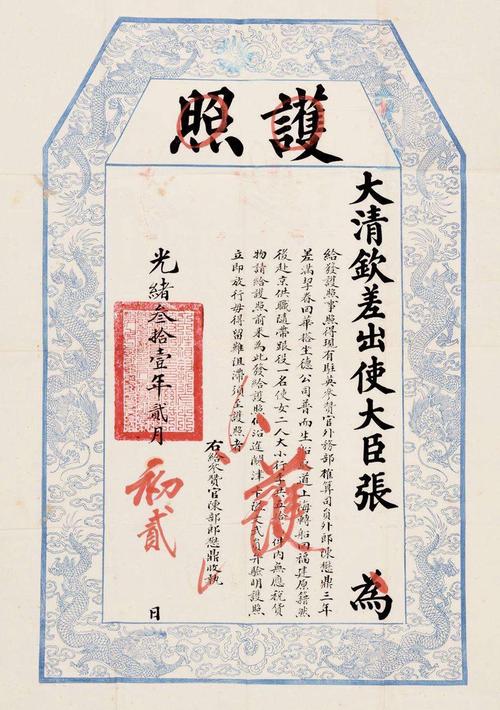 護照
大清欽差出使大臣張 為
給發護照事照得現有駐英參贊官外務部榷算司員外郎陳懋鼎三年
差滿挈眷回華搭坐德公司普而生船取道上海轉船回福建原籍然
後赴京供職隨帶跟役一名使女二人大小行李共五拾 件內無應稅貨
物請給護照前來為此發給護照仰沿途關津 文武員弁驗明護照
立即放行毋得留難阻滯須至護照者
右給參贊官陳部郎懋鼎收執
護
光緒叁拾壹年貳月 初貳 日